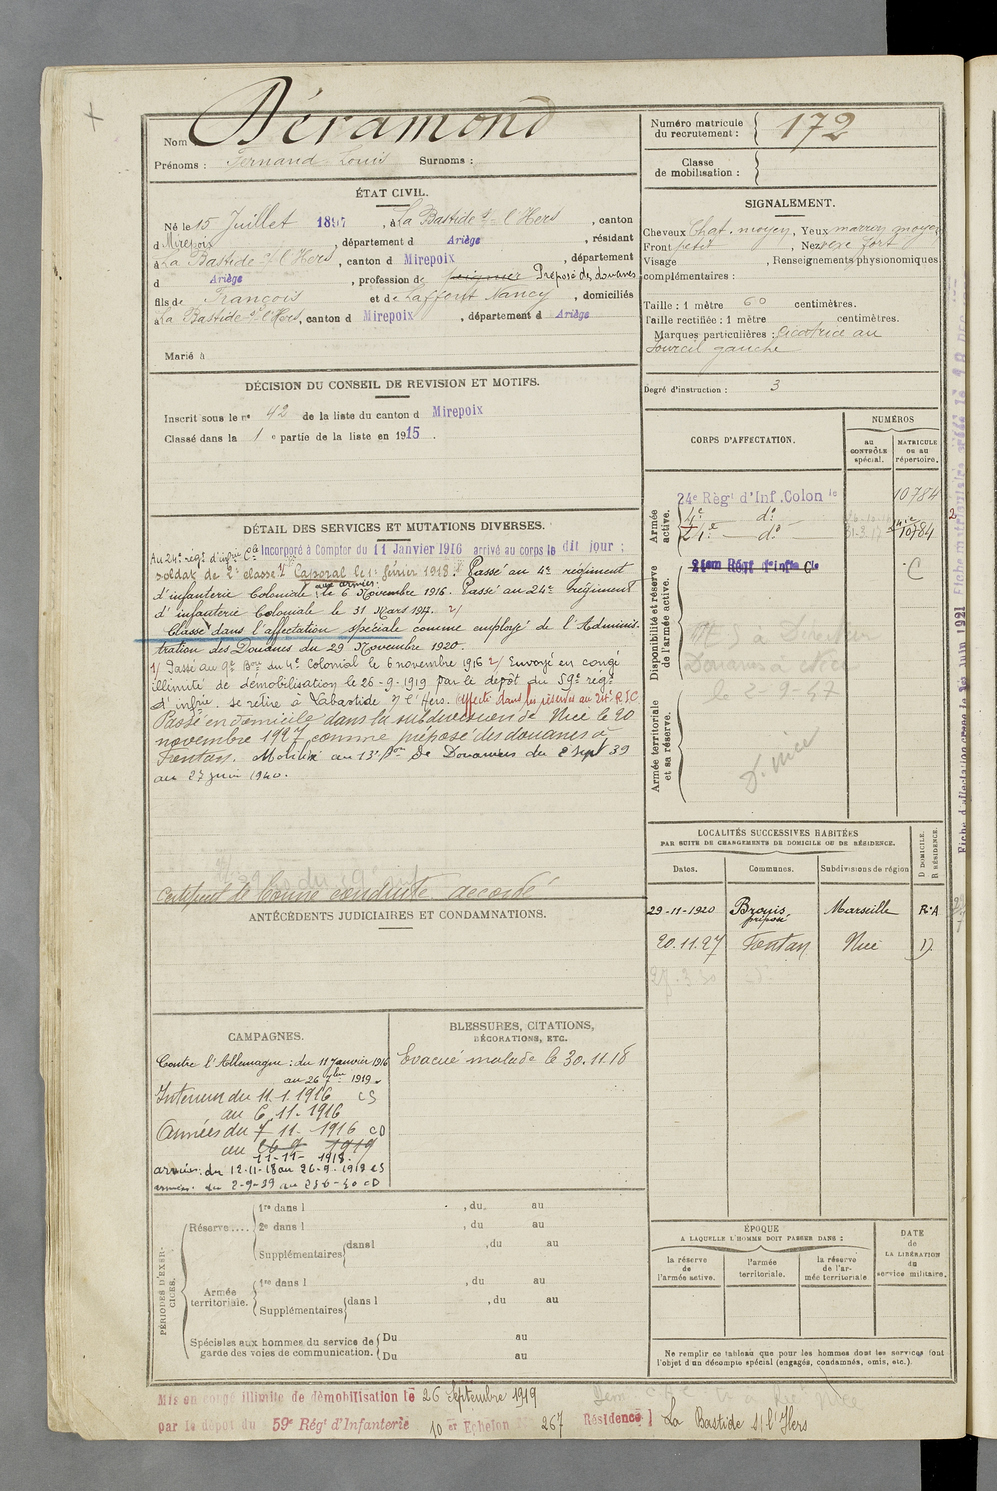 Nom Déramond
Prénoms : Fernand Louis Surnoms :
Numéro matricule du recrutement : 172
Classe de mobilisation :
ÉTAT CIVIL.
Né le 15 Juillet 1897, à La Bastide s/ l'Hers, canton
d Mirepoix, département d Ariège, résidant
à La Bastide s/ l'Hers, canton d Mirepoix, département
d Ariège, profession de Préposé des douanes
fils de François et de Laffont Nancy, domiciliés
à La Bastide s/ l'Hers, canton d Mirepoix, département d Ariège
Marié à
SIGNALEMENT.
Cheveux Chat. moyen, Yeux marron moyen
Front petit, Nez fort
Visage , Renseignements physionomiques
complémentaires :
Taille : 1 mètre 60 centimètres.
Taille rectifiée : 1 mètre centimètres.
Marques particulières : Cicatrice au
sourcil gauche
Degré d'instruction : 3
DÉCISION DU CONSEIL DE REVISION ET MOTIFS.
Inscrit sous le n° 42 de la liste du canton d Mirepoix
Classé dans la 1 e partie de la liste en 1915.
DÉTAIL DES SERVICES ET MUTATIONS DIVERSES.
Au 24e régt d'infrie Cle Incorporé à Compter du 11 Janvier 1916 arrivé au corps le dit jour ;
soldat de 2e classe. Caporal le 1er février 1918. Passé au 4e régiment
d'infanterie Coloniale aux armées le 6 Novembre 1916. Passé au 24e régiment
d'infanterie Coloniale le 31 Mars 1917. 2/
Classé dans l'affectation spéciale comme employé de l'Adminis-
tration des Douanes du 29 Novembre 1920.
1/ Passé au 9e Bon du 4e Colonial le 6 novembre 1916 2/ Envoyé en congé
illimité de démobilisation le 26-9-1919 par le dépôt du 59e régt
d'infrie. se retire à Labastide s/ l'Hers. Affecté dans les réserves au 24e R.I.C
Passé en domicile dans la subdivision de Nice le 20
novembre 1927 comme préposé des douanes à
Fontan. Mobilisé au 13e Bon de Douaniers du 2 Sept 39
au 27 juin 1940.
Certificat de bonne conduite accordé
CORPS D'AFFECTATION.
NUMÉROS
au CONTRÔLE spécial.
MATRICULE ou au répertoire.
Armée active.
24e Règt d'Inf. Colon le 10784
4e do
do 10784
Disponibilité et réserve de l'armée active.
Régt d'Infie Cle
Douanes à Nice
Armée territoriale et sa réserve.
D. Nice
LOCALITÉS SUCCESSIVES HABITÉES
PAR SUITE DE CHANGEMENTS DE DOMICILE OU DE RÉSIDENCE.
D DOMICILE. R RÉSIDENCE.
Dates. Communes. Subdivisions de région
29-11-1920 Brouis préposé Marseille R.A
20.11.27 Fontan Nice D
ANTÉCÉDENTS JUDICIAIRES ET CONDAMNATIONS.
CAMPAGNES.
Contre l'Allemagne : du 11 Janvier 1916
au 26 7bre 1919.
Intérieur du 11.1.1916 CS
au 6.11-1916
Armées du 7-11-1916 CD
au 26 9 1919
11-11-1918.
armées : du 12-11-18 au 26-9-1919 CS
armées : du 2-9-39 au CD
BLESSURES, CITATIONS,
DÉCORATIONS, ETC.
Evacué malade le 30.11.18
PÉRIODES D'EXERCICES.
Réserve....
1re dans l , du au
2e dans l , du au
Supplémentaires dans l , du au
Armée territoriale.
1re dans l , du au
Supplémentaires dans l , du au
Spéciales aux hommes du service de
garde des voies de communication.
Du au
Du au
ÉPOQUE
A LAQUELLE L'HOMME DOIT PASSER DANS :
DATE de LA LIBÉRATION du service militaire.
la réserve de l'armée active.
l'armée territoriale.
la réserve de l'armée territoriale
Ne remplir ce tableau que pour les hommes dont les services font
l'objet d'un décompte spécial (engagés, condamnés, omis, etc.).
Mis en congé illimité de démobilisation le 26 Septembre 1919
par le dépôt du 59e Régt d'Infanterie 10 er Echelon N° 267 Résidence La Bastide s/ l'Hers